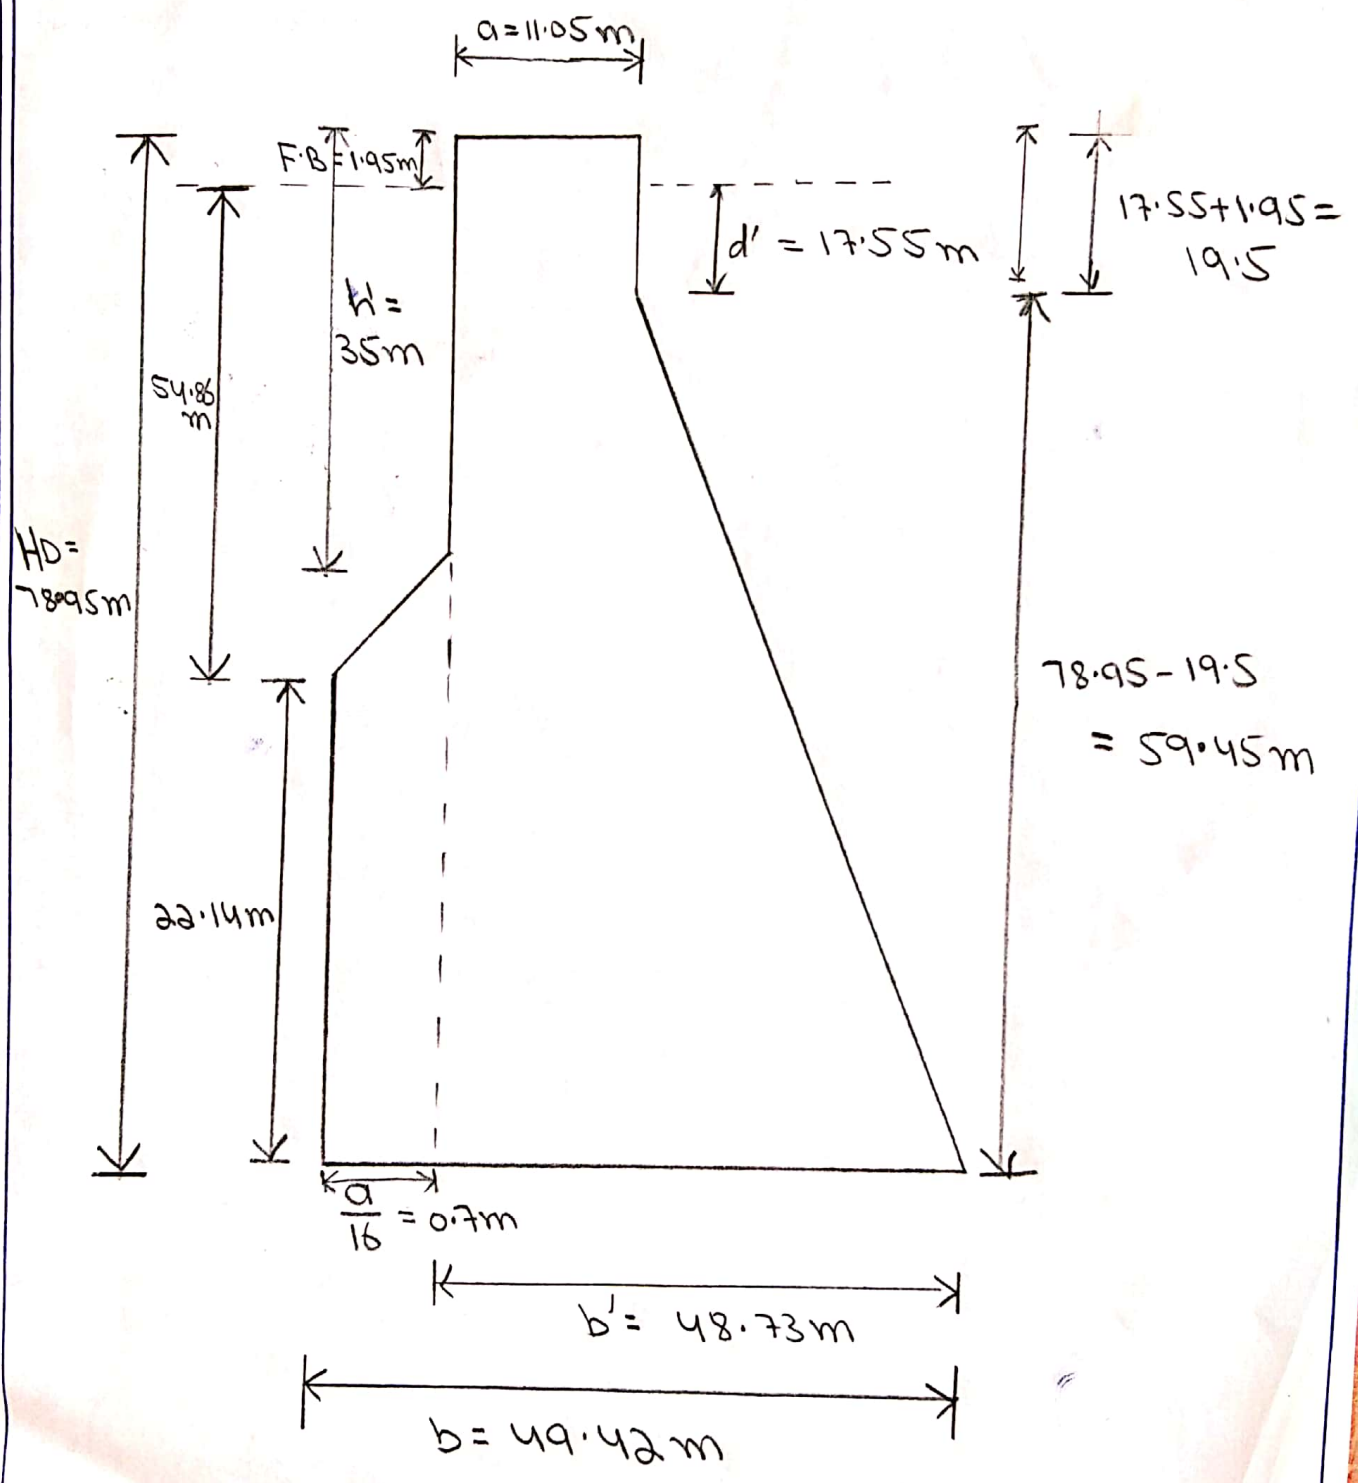 a=11.05m
F.B=1.95m
17.55+1.95=
19.5
d' = 17.55m
h'=
35m
54.86
m
HD=
78.95m
78.95-19.5
= 59.45m
22.14m
a
16
= 0.7m
b'= 48.73m
b= 49.42m